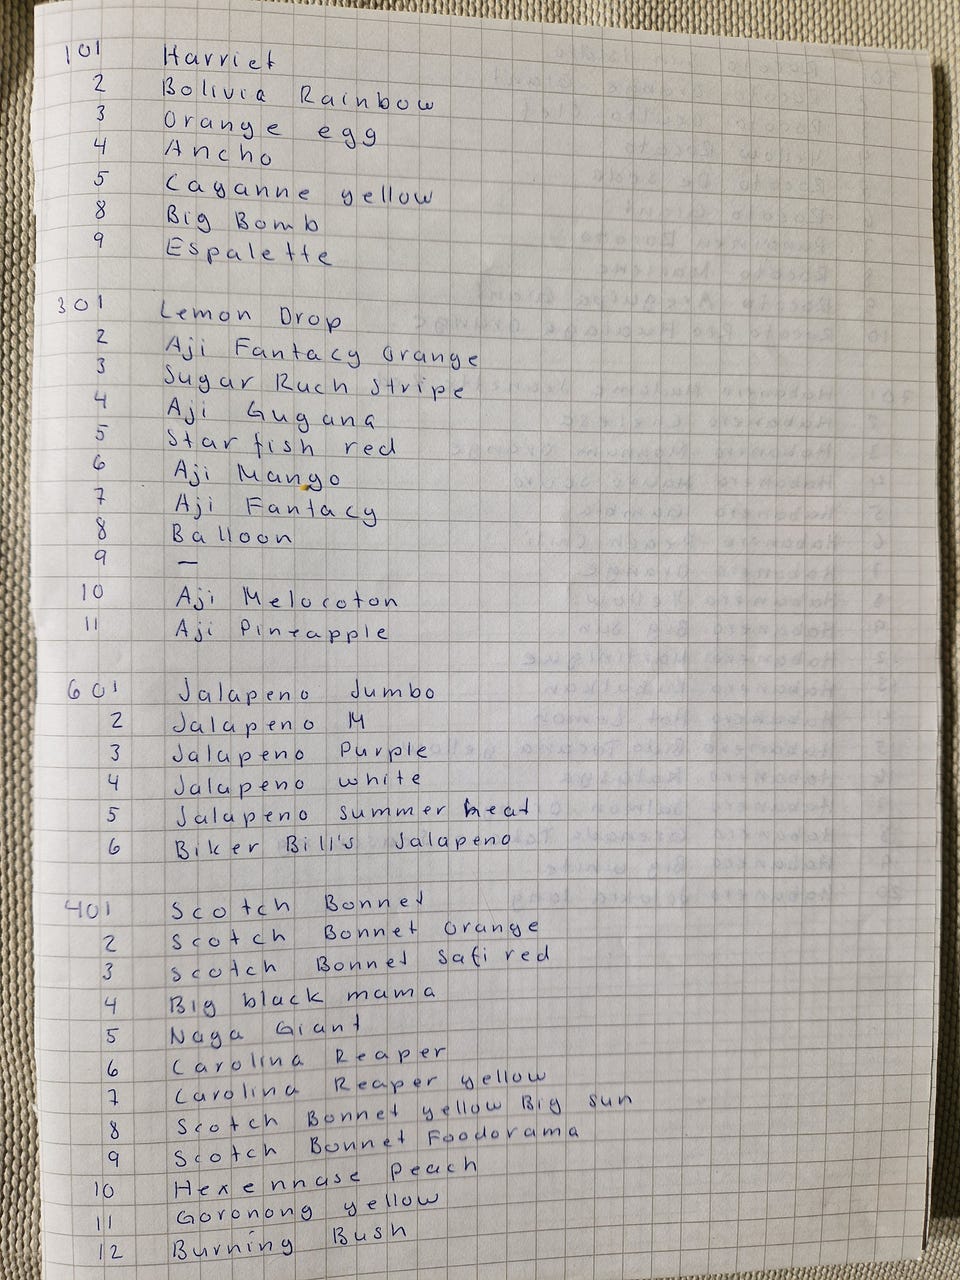 101 Harriet
2 Bolivia Rainbow
3 Orange egg
4 Ancho
5 Cayanne yellow
8 Big Bomb
9 Espalette
301 Lemon Drop
2 Aji Fantacy Orange
3 Sugar Ruch Stripe
4 Aji Guyana
5 Starfish red
6 Aji Mango
7 Aji Fantacy
8 Balloon
9 —
10 Aji Melocoton
11 Aji Pineapple
601 Jalapeno Jumbo
2 Jalapeno M
3 Jalapeno Purple
4 Jalapeno white
5 Jalapeno summer heat
6 Biker Bill's Jalapeno
401 Scotch Bonnet
2 Scotch Bonnet Orange
3 Scotch Bonnet Safi red
4 Big black mama
5 Naga Giant
6 Carolina Reaper
7 Carolina Reaper yellow
8 Scotch Bonnet yellow Big sun
9 Scotch Bonnet Foodorama
10 Hexennase Peach
11 Goronong yellow
12 Burning Bush